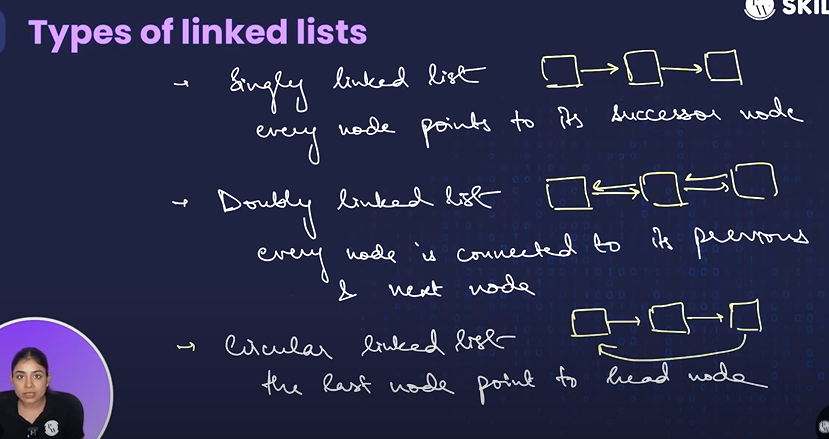 SKIL
Types of linked lists
→ Singly linked list
every node points to its successor node
→ Doubly linked list
every node is connected to its previous
& next node
→ Circular linked list
the last node point to head node